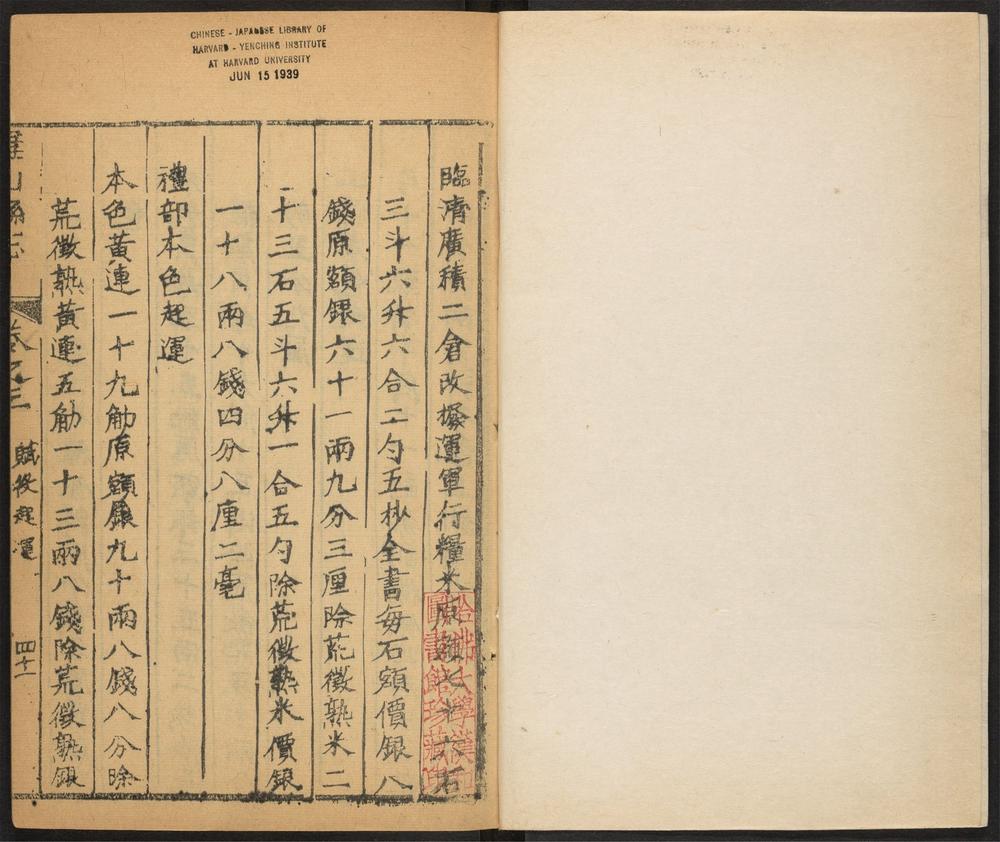 CHINESE - JAPANESE LIBRARY OF
HARVARD - YENCHING INSTITUTE
AT HARVARD UNIVERSITY
JUN 15 1939
臨清廣積二倉改撥運軍行糧米原額七十六石
三斗六升六合二勺五抄全書每石額價銀八
錢原額銀六十一兩九分三厘除荒徵熟米二
十三石五斗六升一合五勺除荒徵熟米價銀
一十八兩八錢四分八厘二毫
禮部本色起運
本色黃連一十九觔原額銀九十兩八錢八分除
荒徵熟黃連五觔一十三兩八錢除荒徵熟銀
山縣志
卷之三
賦役起運
四十一
哈佛大學漢和
圖書館珍藏印